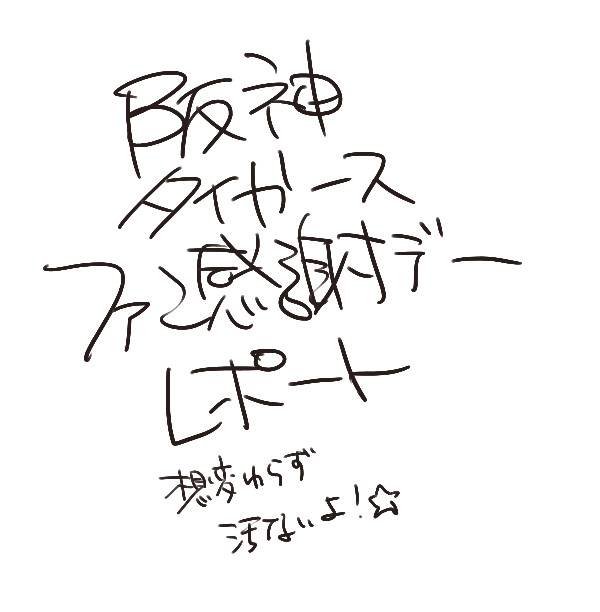 阪神
タイガース
ファン感謝デー
レポート
想変わらず
汚ないよ！☆